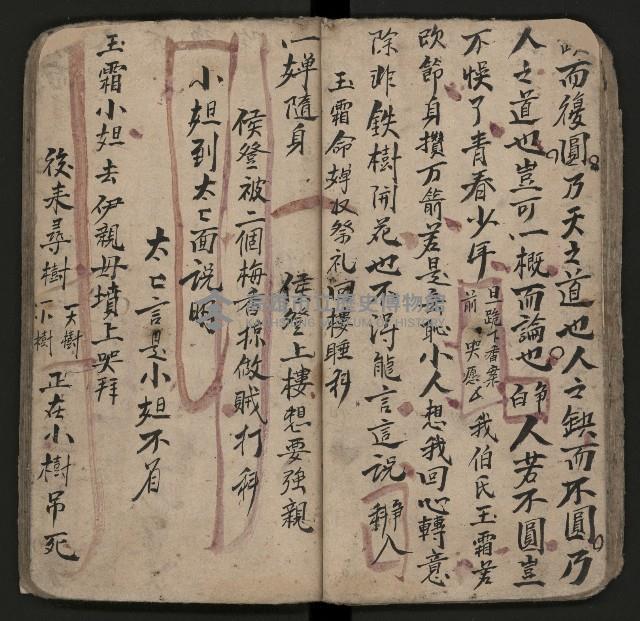 而復圓乃天之道也人之缺而不圓乃
人之道也豈可一概而論也 爭白 人若不圓豈
不悞了青春少年 旦跪下香案前 哭愿 我伯氏玉霜若
改節身攢万箭若是無恥小人想我回心轉意
除非鉄樹開花也不得能言這說 爭人
玉霜命婢收祭礼回樓睡科
一婢隨身
侯登上樓想要強親
侯登被二個梅香採做賊打科
小姐到太匕面說明
太匕言是小姐不肖
玉霜小姐去伊親母墳上哭拜
後来尋樹 一大樹 一小樹 正在小樹吊死
高雄市立歷史博物館
KAOHSIUNG MUSEUM OF HISTORY